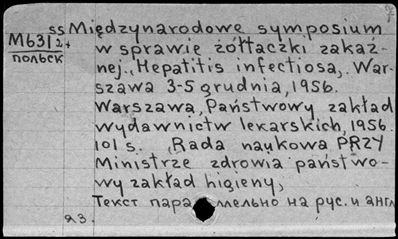 ss Międzynarodowe symposium
M63/2+ w sprawie żółtaczki zakaź-
польск nej, Hepatitis infectiosa, War-
szawa 3-5 grudnia, 1956.
Warszawa, Państwowy zakład
wydawnictw lekarskich, 1956.
101 s. Rada naukowa PRZY
Ministrze zdrowia państwo-
wy zakład higieny,
Текст пара мельно на рус. и англ
яз.